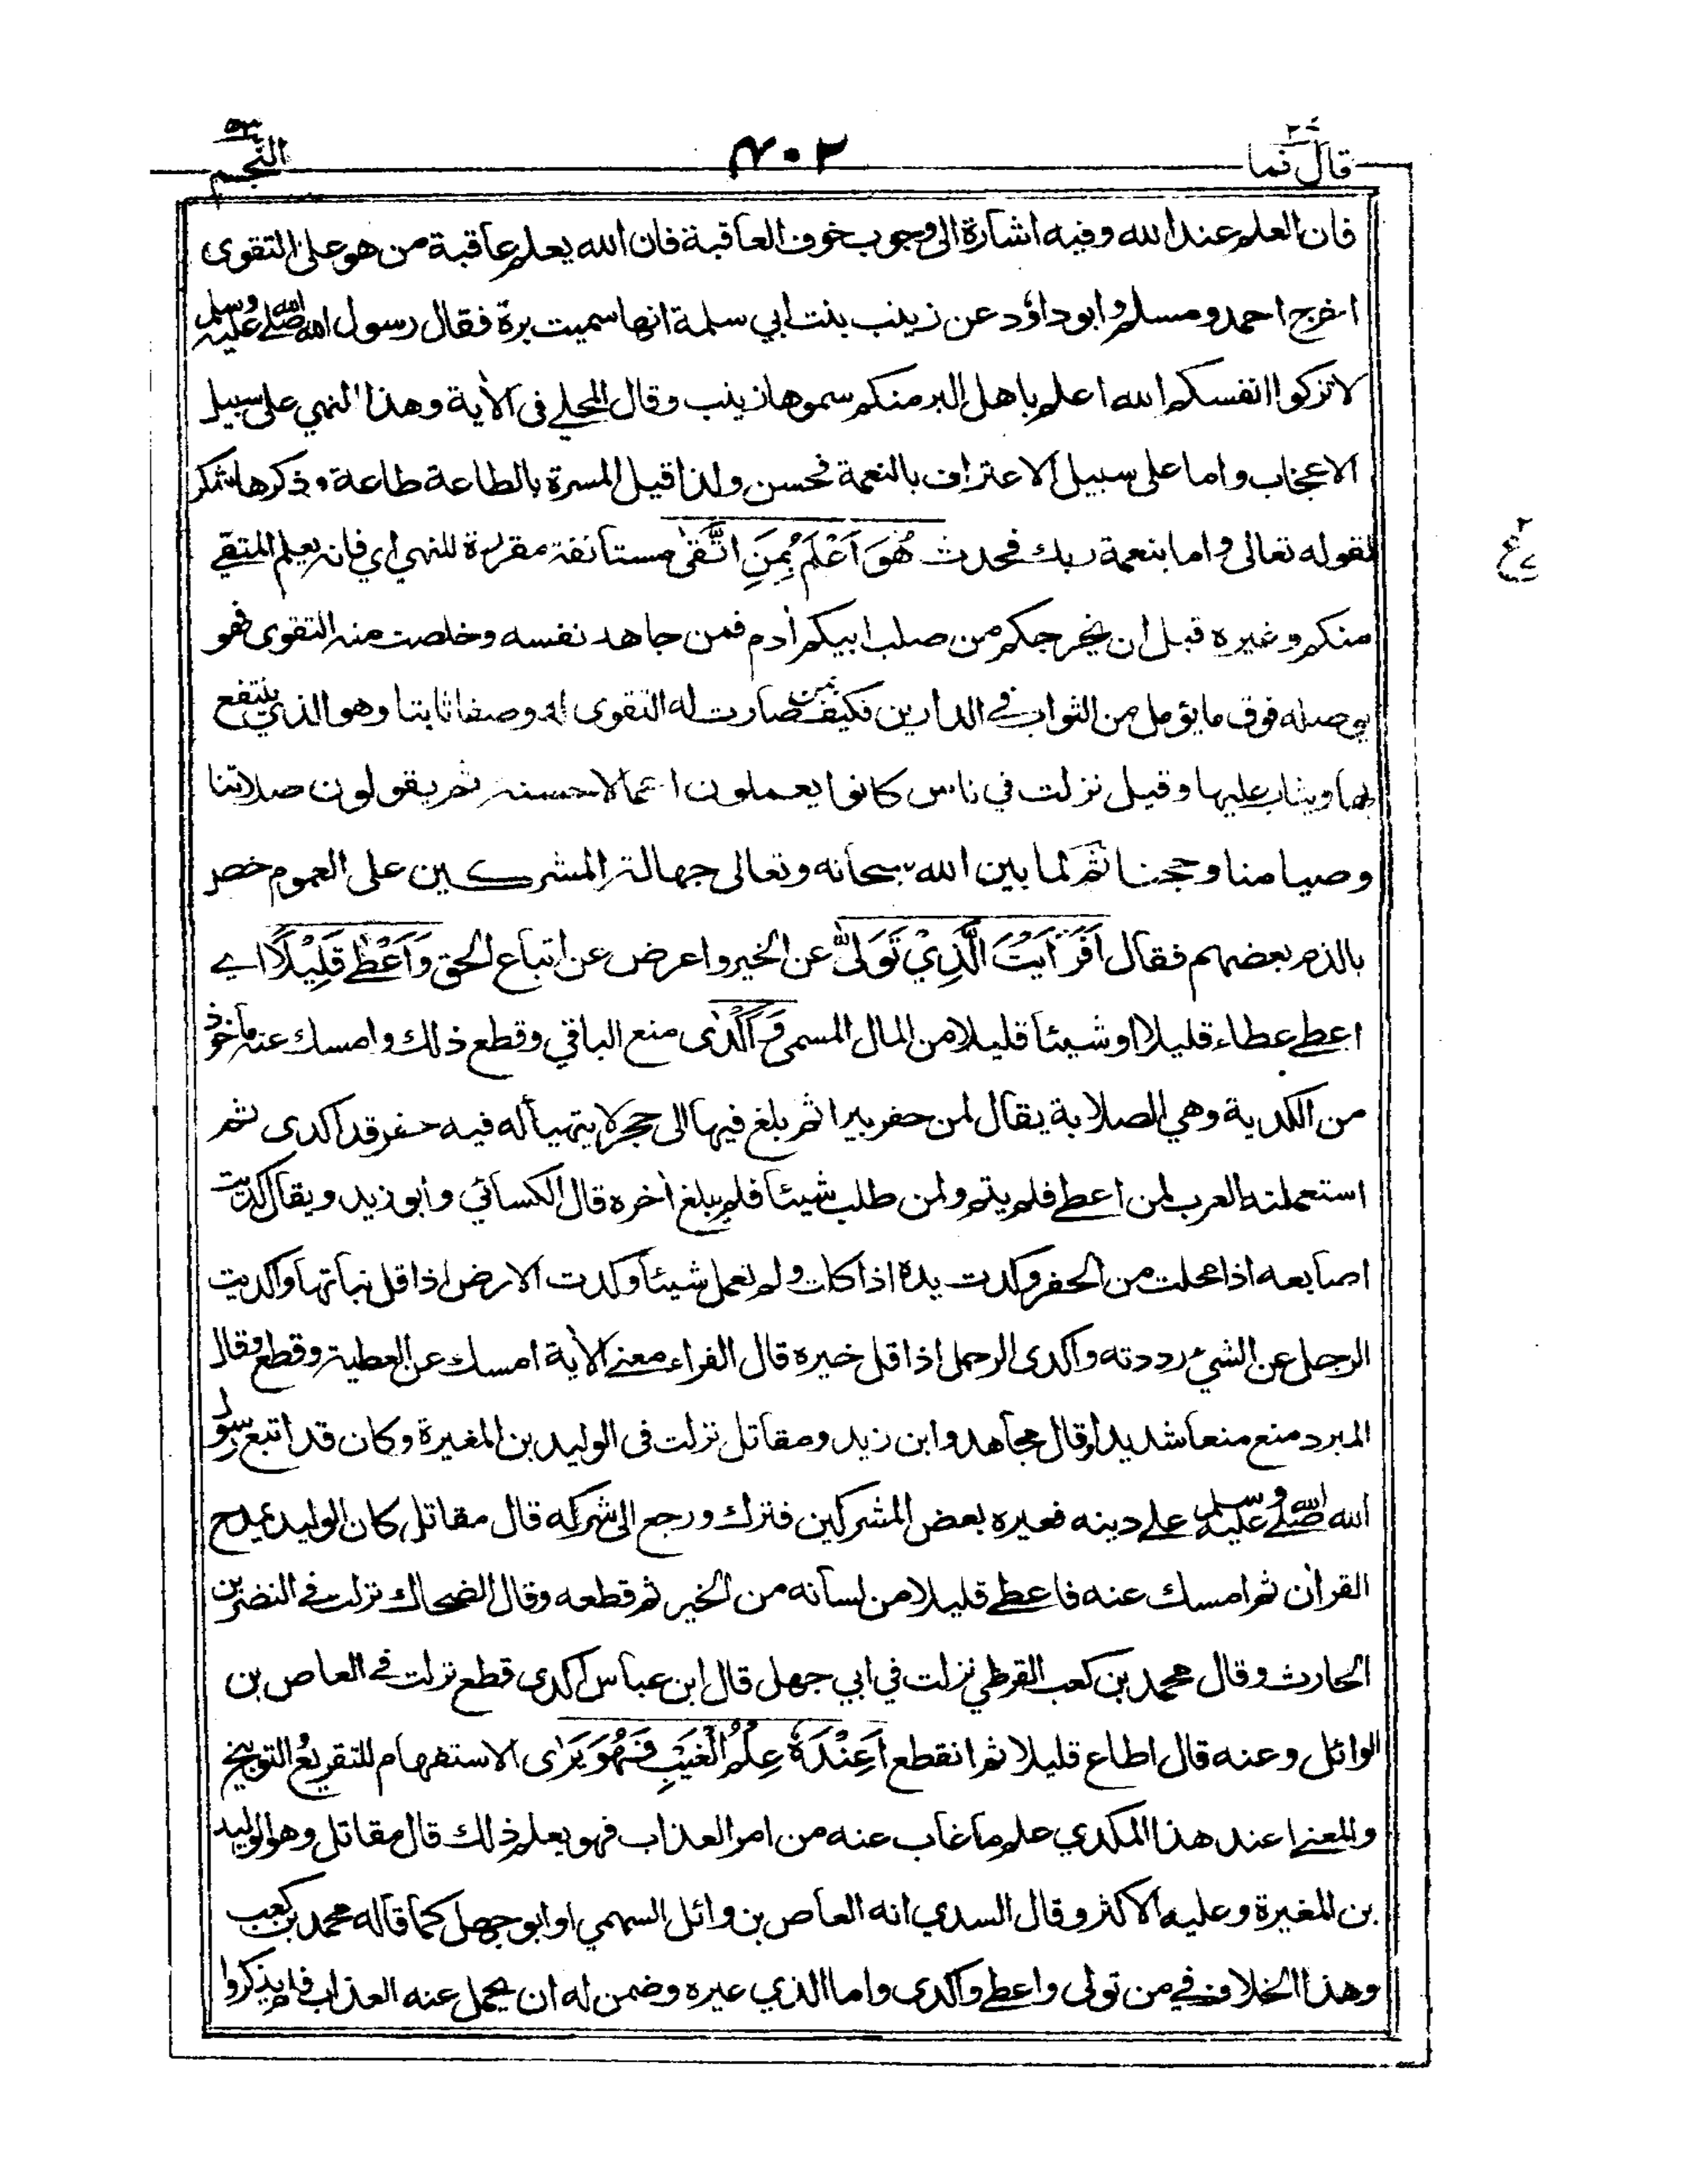 قال فما ٢٧
٤٠٢
النجم ٥٣
فان العلم عند الله وفيه اشارة الى وجوب خوف العاقبة فان الله يعلم عاقبة من هو على التقوى
اخرج احمد ومسلم وابو داؤد عن زينب بنت ابي سلمة انها سميت برة فقال رسول الله صلى الله عليه وسلم
لا تزكوا انفسكم الله اعلم باهل البر منكم سموها زينب وقال المحلي في الآية وهذا النهي على سبيل
الاعجاب واما على سبيل الاعتراف بالنعمة فحسن ولذا قيل المسرة بالطاعة طاعة وذكرها شكر
لقوله تعالى واما بنعمة ربك فحدث هُوَ اَعْلَمُ بِمَنِ اتَّقٰى مستانفة مقررة للنهي اي فانه يعلم المتقي
منكم وغيره قبل ان يخرجكم من صلب ابيكم آدم فمن جاهد نفسه وخلصت منه التقوى فهو
يوصله فوق ما يؤمل من الثواب في الدارين فكيف بمن صارت له التقوى له وصفا ثابتا وهو الذي ينتفع
بها ويثاب عليها وقيل نزلت في ناس كانوا يعملون اعمالا حسنة ثم يقولون صلاتنا
وصيامنا وحجنا ثم لما بين الله سبحانه وتعالى جهالة المشركين على العموم خص
بالذم بعضهم فقال اَفَرَاَيْتَ الَّذِيْ تَوَلّٰى عن الخير واعرض عن اتباع الحق وَاَعْطٰى قَلِيْلًا اي
اعطى عطاء قليلا او شيئا قليلا من المال المسمى وَّاَكْدٰى منع الباقي وقطع ذلك وامسك عنه ماخوذ
من الكدية وهي الصلابة يقال لمن حفر بيرا ثم بلغ فيها الى حجر لا يتهيأ له فيه حفر قد اكدى ثم
استعملته العرب لمن اعطى فلم يتم ولمن طلب شيئا فلم يبلغ آخره قال الكسائي وابو زيد ويقال كديت
اصابعه اذا محلت من الحفر وكدت يده اذا كلت ولم تعمل شيئا وكدت الارض اذا قل نباتها واكديت
الرجل عن الشيء رددته واكدى الرجل اذا قل خيره قال الفراء معنى الآية امسك عن العطية وقطع وقال
المبرد منع منعا شديدا وقال مجاهد وابن زيد ومقاتل نزلت في الوليد بن المغيرة وكان قد اتبع رسول
الله صلى الله عليه وسلم على دينه فعيره بعض المشركين فترك ورجع الى شركه قال مقاتل كان الوليد يمدح
القرآن ثم امسك عنه فاعطى قليلا من لسانه من الخير ثم قطعه وقال الضحاك نزلت في النضر بن
الحارث وقال محمد بن كعب القرظي نزلت في ابي جهل قال ابن عباس اكدى قطع نزلت في العاص بن
الوائل وعنه قال اطاع قليلا ثم انقطع اَعِنْدَهٗ عِلْمُ الْغَيْبِ فَهُوَ يَرٰى الاستفهام للتقريع والتوبيخ
والمعنى اعند هذا المكدي علم ما غاب عنه من امر العذاب فهو يعلم ذلك قال مقاتل وهو الوليد
بن المغيرة وعليه الاكثر وقال السدي انه العاص بن وائل السهمي او ابو جهل كما قاله محمد بن كعب
وهذا الخلاف في من تولى واعطى واكدى واما الذي عيره وضمن له ان يحمل عنه العذاب فلم يذكروا